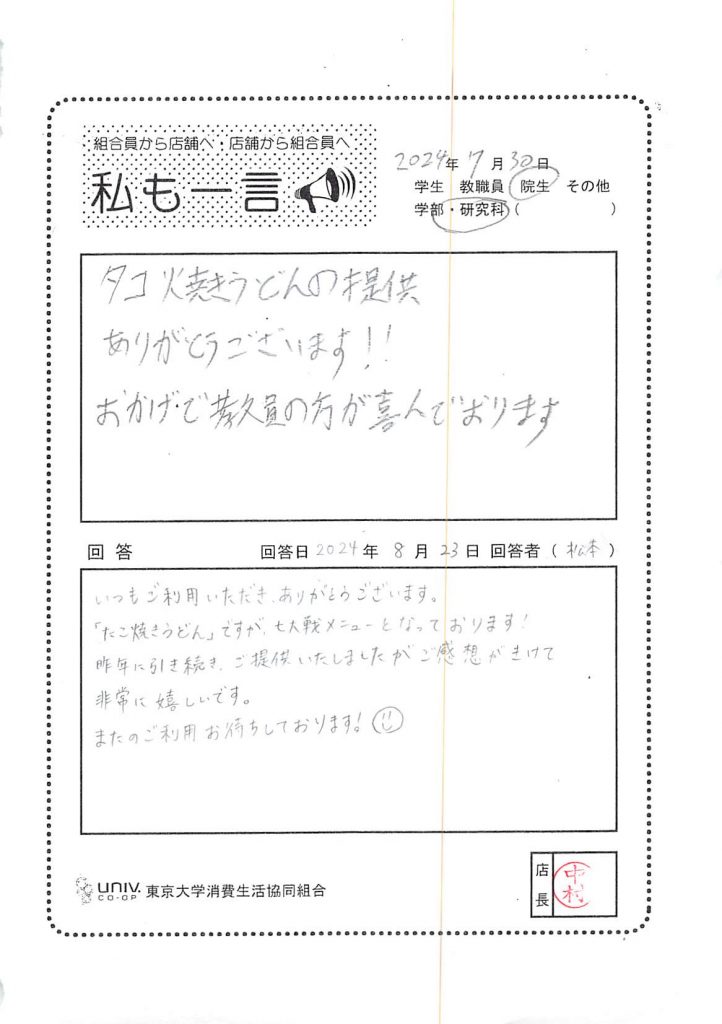 組合員から店舗へ・店舗から組合員へ
私も一言
2024年 7月 30日
学生 教職員 院生 その他
学部・研究科 ( )
タコ焼きうどんの提供
ありがとうございます!!
おかげで教員の方が喜んでおります
回答 回答日 2024年 8月 23日 回答者 ( 松本 )
いつもご利用いただき、ありがとうございます。
「たこ焼きうどん」ですが、七大戦メニューとなっております!
昨年に引き続き、ご提供いたしましたがご感想がきけて
非常に嬉しいです。
またのご利用お待ちしております!
UNIV. CO-OP 東京大学消費生活協同組合
店長 中村